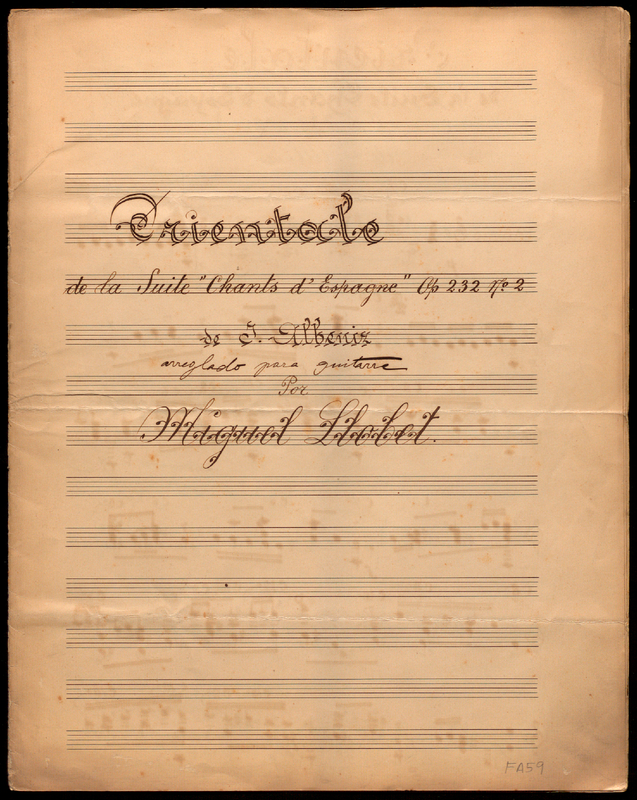 Orientale
de la Suite "Chants d'Espagne" Op 232 Nº 2
de I. Albeniz
arreglado para guitarre
Por
Miguel Llobet.
FA59